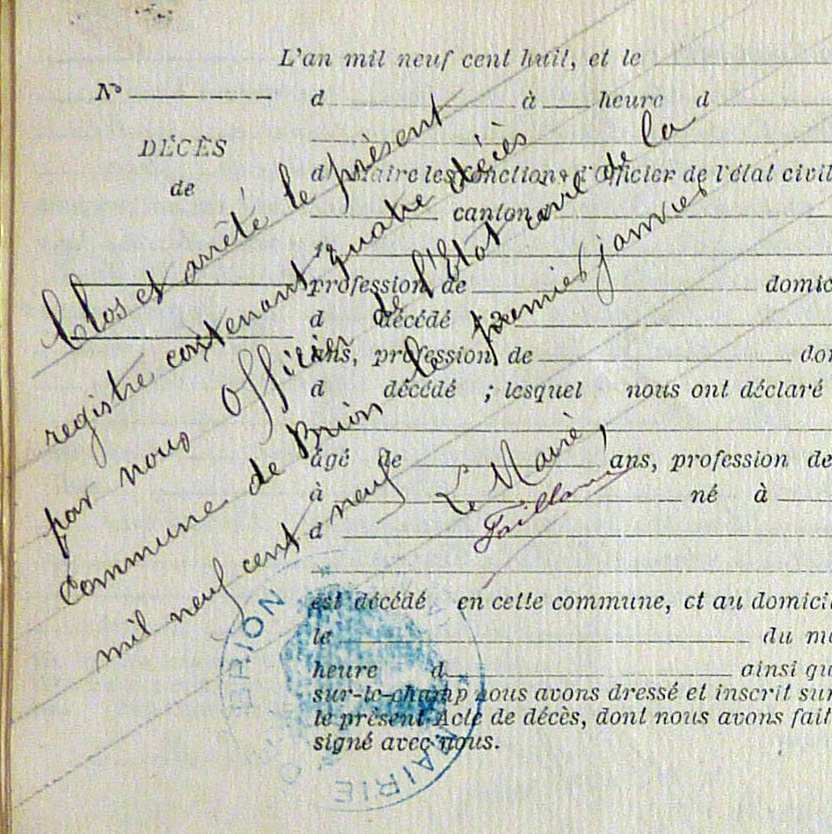 L'an mil neuf cent huit, et le
N°
d à heure d
DÉCÈS
de
d Maire les fonctions d'Officier de l'état civil
canton d
profession de domic
d décédé
ans, profession de do
d décédé ; lesquel nous ont déclaré
âgé de ans, profession de
à né à
d
est décédé en cette commune, et au domici
le du mo
heure d ainsi qu
sur-le-champ nous avons dressé et inscrit sur
le présent Acte de décès, dont nous avons fait
signé avec nous.
Clos et arrêté le présent
registre contenant quatre décès
par nous Officier de l'Etat civil de la
commune de Brion le premier janvier
mil neuf cent neuf
Le Maire,
MAIRIE
BRION